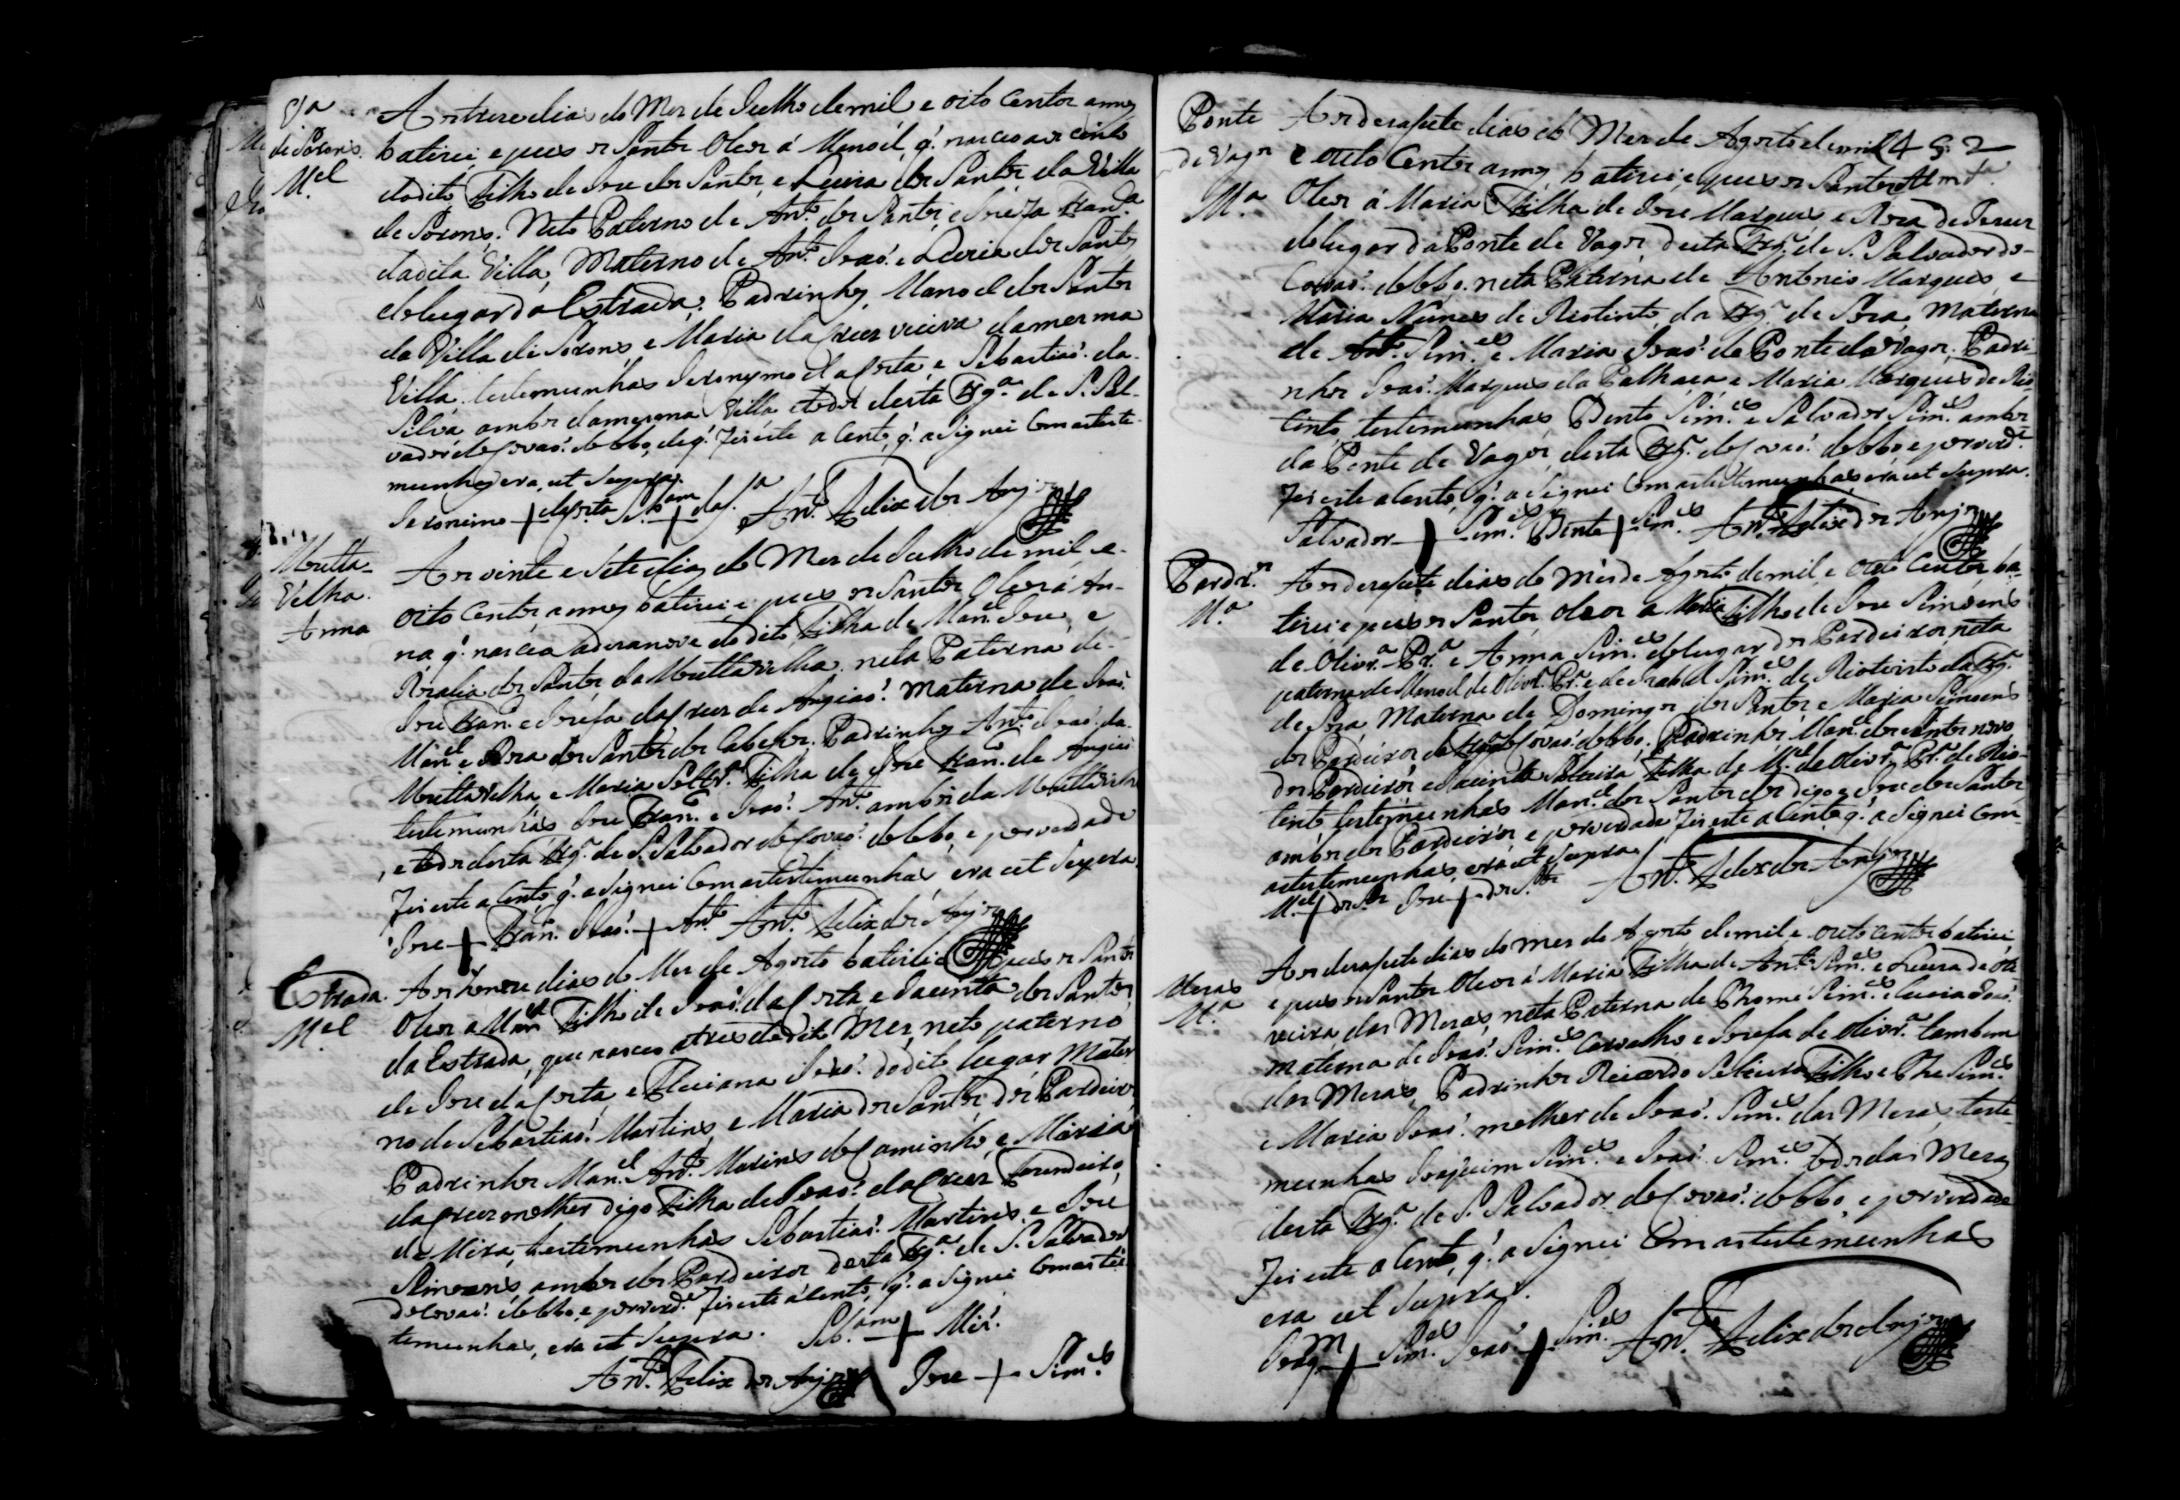 Vª
de Sorons.
Mel
Aos treze dias do Mes de Julho de mil e oito Centos annos
batizei e pus os Santos Oleos á Manoel, q. nasceo aos cinco
do dito, Filho de Jose dos Santos, e Luiza dos Santos da Villa
de Sorons. Neto Paterno de Antº dos Santos, e Josefa
da dita Villa, Materno de Antº Joaõ. e Luzia dos Santos
do lugar da Estrada; Padrinhos, Manoel dos Santos
da Villa de Sorons e Maria da Cruz viuva da mesma
Villa, testemunhas Jeronymo da Costa, e Sebastiaõ. da
Silva ambos da mesma Villa e todos desta Frgª. de S. Sal-
vador de Covaõ. do Lobo, de q. fiz este acento, q. asignei Com as teste-
munhas, era, ut supra.
Jeronimo + da Costa Sebam + da Sª Antº Felix dos Anjos
Moitta
Velha.
Anna
Aos vinte e sete dias do Mes de Julho de mil, e
oito Centos annos batizei e pus os Santos Oleos á An-
na, q. nasceo a dezanove do dito, Filha de Manel Jose, e
Rozalia dos Santos da Moitta velha. neta Paterna de
Jose Franco e Josefa da Cruz de Angiaõ. Materna de Joaõ
Manel e Roza dos Santos dos Cabesos. Padrinhos Antº Joaõ. da
Moitta velha, e Maria Filha de Jose Franco de Angiaõ
testemunhas Jose Franco e Joaõ. Antº ambos da Moitta velha
, e todos desta Frgª de S. Salvador de Covaõ. do Lobo, e por verdade
fiz este acento, q. asignei Com as testemunhas, era ut supra.
Jose + Franco. Joaõ. + Antº Antº Felix dos Anjos
Estrada.
Mel
Aos honze dias do Mes de Agosto batizei e pus os Santos
Oleos a Manel Filho de Joaõ. da Costa, e Jacinta dos Santos
da Estrada, que nasceo a tres do dito Mes, neto paterno
de Jose da Costa, e Luciana Joaõ. do dito lugar, Mater
no de Sebastiaõ. Martins, e Maria dos Santos dos Pardeiros,
Padrinhos Manel Antº Marins do Caminho, e Maria
da Cruz molher digo Filha de Joaõ. da Cruz
de Mira, testemunhas Sebastiaõ. Martins e Jose
Simoens, ambos dos Pardeiros desta Frgª de S. Salvador
de Covaõ. do Lobo, e por verdˢ fiz este acento, q. asignei Com as tes
temunhas, era ut supra. Sebam + Miz.
Antº Felix dos Anjos Jose + Simes
Ponte
de Vagos
Mª
Aos dezasete dias do Mes de Agosto de mil 492
e outo Centos annos batizei e pus os Santos Almdª
Oleos á Maria Filha de Jose Marques e Roza de Jesus
do lugar da Ponte de Vagos, desta Frgª. de S. Salvador do
Covaõ. do Lobo. neta Paterna de Antonio Marques, e
Maria Nunes de Riotinto, da Frgª de Soza, Materna
de Antº Simes e Maria Joaõ. da Ponte de Vagos, Padri-
nhos Joaõ. Marques da Palhaça e Maria Marques de Rio
tinto, testemunhas Bento Simes e Salvador Simes ambos
da Ponte de Vagos, desta Frgª. de Covaõ. do Lobo, e por verdˢ.
fiz este acento, q. asignei Com as testemunhas era ut supra.
Salvador + Simes Bento + Simes Antº Felix dos Anjos
Pardrˢ
Mª
Aos dezasete dias do Mes de Agosto, de mil, e oito Centos, ba-
tizei e pus os Santos, Oleos a Maria Filha de Jose Simoens
de Olivrª Prª e Anna Simes do lugar dos Pardeiros, neta
paterna de Manoel de Olivrª Prª e de Izabel Simes de Riotinto da Frgª.
de Soza Materna de Domingos dos Santos e Maria Simoens
dos Pardeiros, da Frgª de Covaõ. do Lobo. Padrinhos Manel dos Santos novo
dos Pardeiros e Jacinta Filha de Mel de Olivrª Prª. de Rio-
tinto testemunhas Manel dos Santos digo e Jose dos Santos
ambos dos Pardeiros, e por verdade fiz este acento q. asignei Com
as testemunhas, era ut supra.
Mel + dos Stos Jose + dos Stos Antº Felix dos Anjos
Mezas
Mª
Aos dezasete dias do mes de Agosto de mil e outo centos batizei
e pus os Santos Oleos á Maria Filha de Antº Simes e Luiza de Oli
veira das Mezas, neta Paterna de Thome Simes e Luzia Joaõ.
materna de Joaõ. Simes Carvalho e Josefa de Olivrª tambem
das Mezas, Padrinhos Ricardo Filho e The Simes
e Maria Joaõ. molher de Joaõ. Simes das Mezas, teste-
munhas Joaquim Simes e Joaõ. Simes todos das Mezas
desta Frgª. de S. Salvador de Covaõ. do Lobo, e por verdade
fiz este acento, q. asignei Com as testemunhas
era ut supra.
Joaqm + Simes Joaõ + Simes Antº Felix dos Anjos